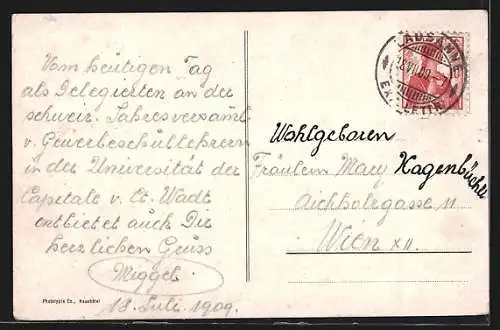 Vom heutigen Tag
als Delegierten an der
schweiz. Jahresversamml
v. Gewerbeschullehrern
in der Universität der
Capitale v. Ct. Wadt
entbietet auch Dir
herzlichen Gruss
Miggel.
18. Juli 1909.
Phototypie Co., Neuchâtel
LAUSANNE
EXP. LETTR.
Wohlgeboren
Fräulein Mary Hagenbüchli
Aichholzgasse 11
Wien XII.